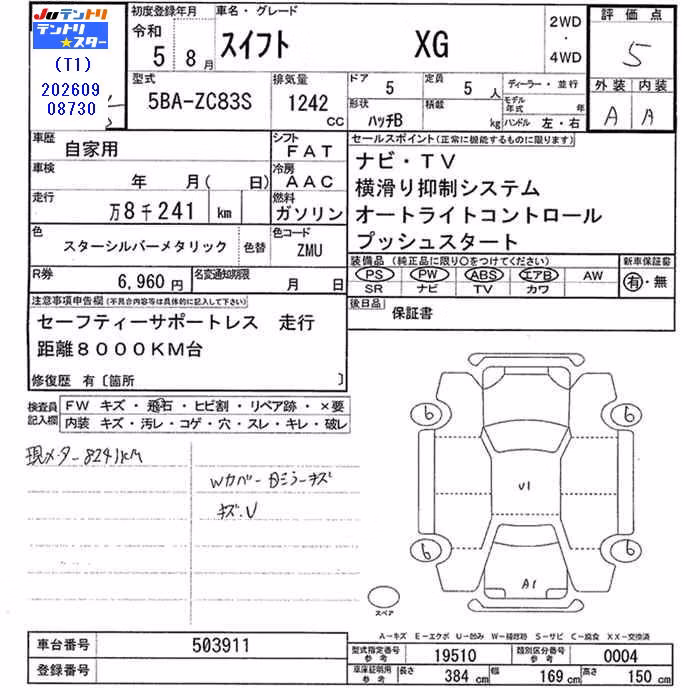 Juテントリ
テントリ★スター
(T1)
202609
08730
初度登録年月
令和
5 8月
車名・グレード
スイフト XG
2WD
・
4WD
評価点
5
外装 内装
A A
型式
5BA-ZC83S
排気量
1242
CC
ドア
5
定員
5 人
形状
ハッチB
積載
kg
ディーラー・並行
モデル年式 年
ハンドル 左・右
車歴
自家用
シフト
FAT
車検
年 月( 日)
冷房
AAC
走行
万8千241 km
燃料
ガソリン
色
スターシルバーメタリック
色替
色コード
ZMU
R券
6,960円
名変通知期限
月 日
セールスポイント(正常に機能するものに限ります)
ナビ・TV
横滑り抑制システム
オートライトコントロール
プッシュスタート
装備品(純正品に限り○をつけてください)
PS PW ABS エアB AW
SR ナビ TV カワ
新車保証書
有・無
後日品
保証書
注意事項申告欄(不具合内容等は具体的に記入して下さい)
セーフティーサポートレス 走行
距離8000KM台
修復歴 有〔箇所 〕
検査員記入欄
FW キズ・飛石・ヒビ割・リペア跡・×要
内装 キズ・汚レ・コゲ・穴・スレ・キレ・破レ
現メーター8241KM
Wカバー・Dミラーキズ
キズ・U
6 6
U1
6 6
A1
スペア
A-キズ E-エクボ U-凹み W-補修跡 S-サビ C-腐食 XX-交換済
車台番号
503911
登録番号
型式指定番号
参考
19510
類別区分番号
参考
0004
車庫証明用
参考
長さ
384 cm
幅
169 cm
高さ
150 cm